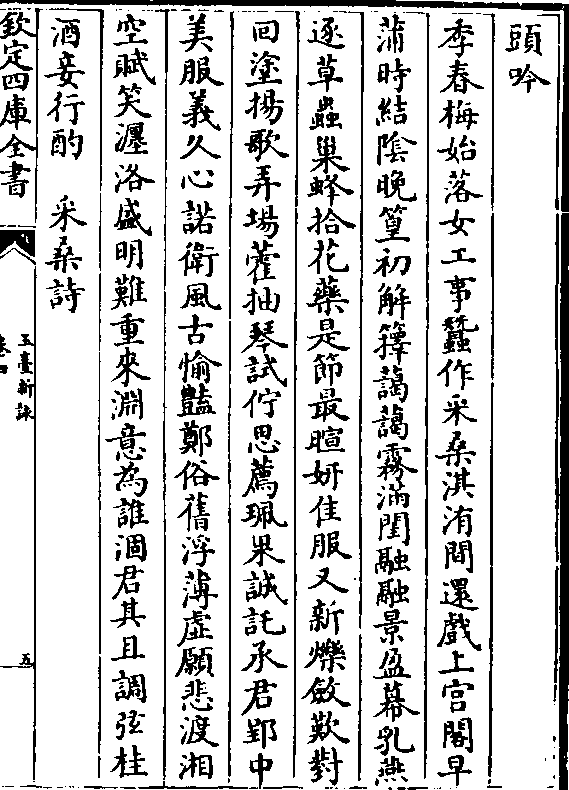 頭吟
季春梅始落女工事蠶作采桑淇洧間還戲上宫閣早
蒲時結陰晚篁初解籜藹藹霧滿閨融融景盈幕乳燕
逐草蟲巢蜂拾花藥是節最暄妍佳服又新爍斂歎對
回塗揚歌弄場藿抽琴試佇思薦珮果誠託承君郢中
美服義久心諾衛風古愉豔鄭俗舊浮薄虛願悲渡湘
空賦笑瀍洛盛明難重來淵意為誰涸君其且調弦桂
酒妾行酌　采桑詩
欽定四庫全書
玉臺新詠
卷四
五